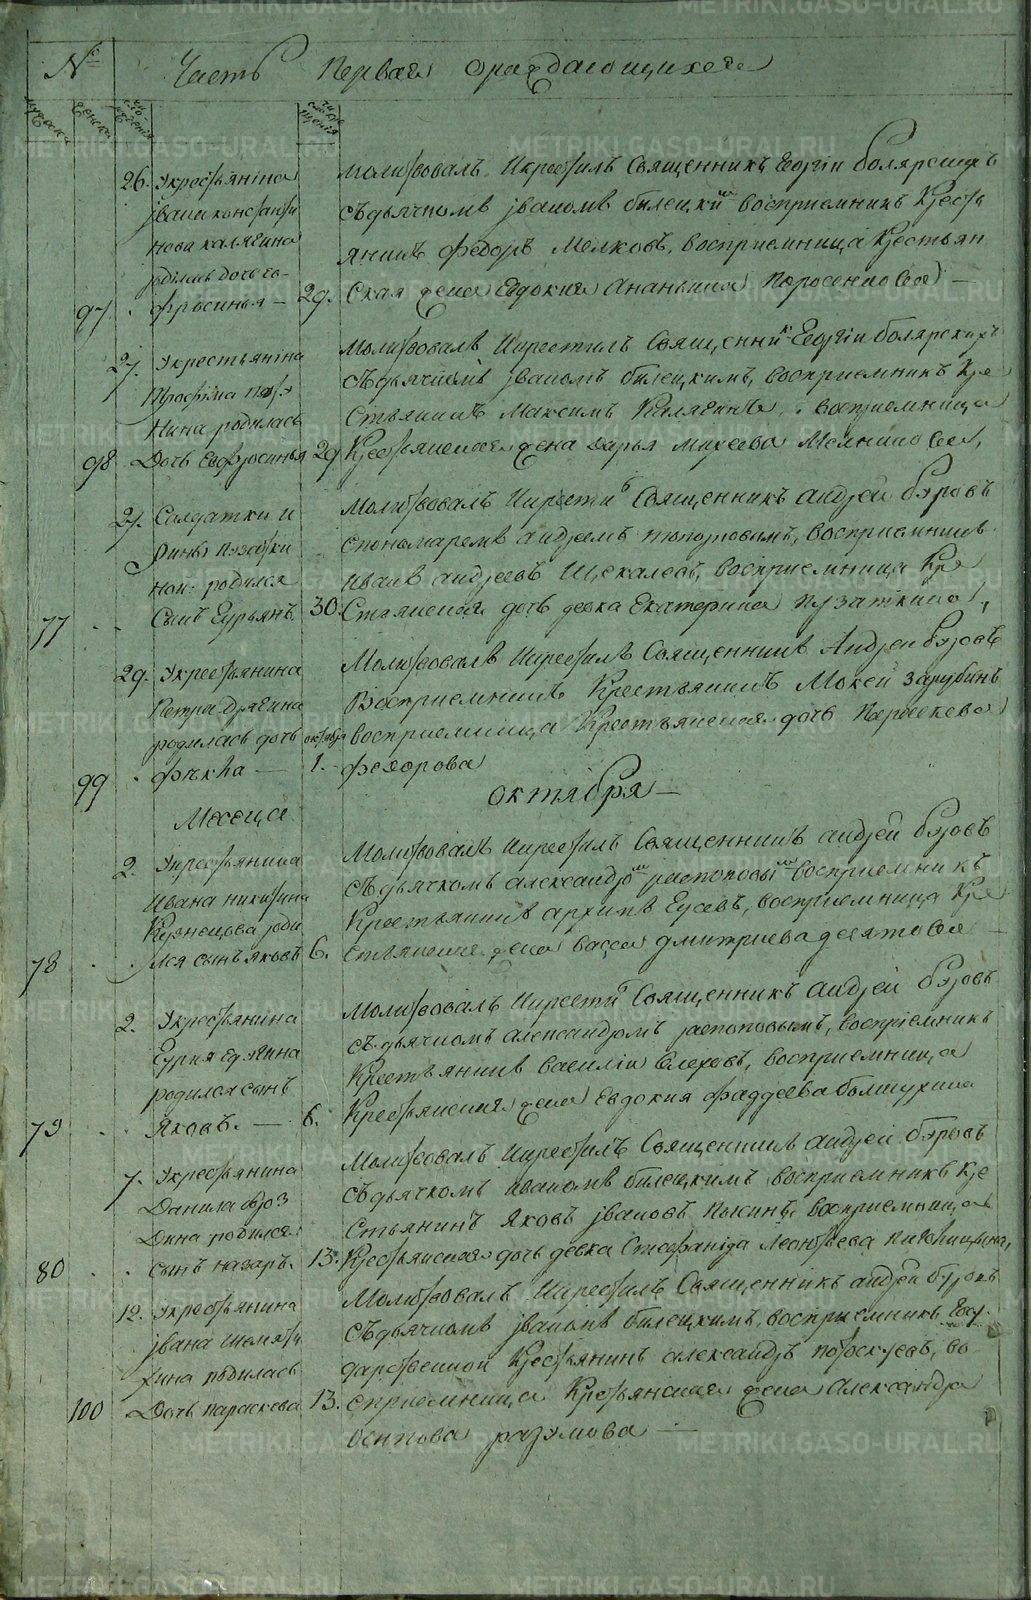 METRIKI.GASO-URAL.RU
№
Часть Первая о раждающихся
мужеска
женска
число рождения
число крещения
26. У крестьянина
Ивана константи
нова калягина
родилась дочь Ев
97 фросинья — 29.
Молитвовалъ и крестилъ Священникъ Георгіи болярскихъ
съ дьячкомъ Іваномъ билецкимъ восприемникъ Кресть
янинъ Федоръ Мелковъ, восприемница Крестьян
ская жена Евдокия Ананьина Поросенкова —
27. У крестьянина
Трофима
нина родилась
98 Дочь Евфросинья 29
Молитвовалъ и крестилъ Священникъ Георгіи болярскихъ
съ дьячкомъ Іваномъ билецкимъ, восприемникъ Кре
стьянинъ Максимъ Калягинъ, восприемница
Крестьянская жена Дарья Михеева Мелникова,
27. Солдатки и
рины пузатки
ной: родился
77 Сынъ Гурьянъ 30.
Молитвовалъ и крестилъ Священникъ андрей бузовъ
с пономаремъ андреемъ топорковымъ, восприемникъ
иванъ андреевъ Щекалевъ, восприемница Кре
стьянская дочь девка Екатерина пузаткина,
29. У крестьянина
Петра Дрягина
родилась дочь октября
99 фёкла — 1.
Молитвовалъ и крестилъ Священникъ Андрей бузовъ
Восприемникъ Крестьянинъ Мокей Зарубинъ
восприемница Крестьянская дочь Парасковья
федорова
Месеца октября —
2. У крестьянина
Ивана никитина
Кузнецова роди
78 лся сынъ яковъ 6.
Молитвовалъ и крестилъ Священникъ андрей бузовъ
съ дьячкомъ александромъ распоповымъ восприемникъ
Крестьянинъ архипъ Гусевъ, восприемница Кре
стьянская жена васса дмитриева десятова —
2. У крестьянина
Гурия
родился сынъ
79 Яковъ. — 6.
Молитвовалъ и крестилъ Священникъ андрей бузовъ
съ дьячкомъ александромъ распоповымъ, восприемникъ
Крестьянинъ василіи Елеховъ, восприемница
Крестьянская жена Евдокия Фаддеева
7. У крестьянина
Данила
дина родился
80 сынъ назаръ. 13.
Молитвовалъ и крестилъ Священникъ андрей бузовъ
съ дьячкомъ иваномъ билецкимъ восприемникъ Кре
стьянинъ Яковъ Івановъ восприемница
Крестьянская дочь девка Стефанида Леонтьева
12. У крестьянина
Івана шемяти
хина родилась
100 Дочь параскева 13.
Молитвовалъ и крестилъ Священникъ андрей бузовъ
съ дьячкомъ Іваномъ билецкимъ, восприемникъ Госу
дарственной Крестьянинъ александръ потоскуевъ, во
сприемница Крестьянская жена Александра
осипова разумова —